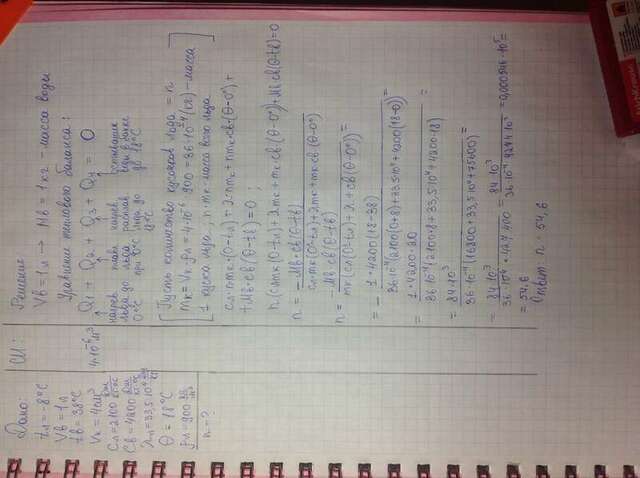 Дано:
tл = -8°C
Vв = 1л
tв = 38°C
Vк = 4см³
Cл = 2100 Дж/кг·°C
Cв = 4200 Дж/кг·°C
λл = 33,5·10⁴ Дж/кг
θ = 18°C
ρл = 900 кг/м³
n - ?
СИ:
4·10⁻⁶м³
Решение
Vв = 1л → Mв = 1кг - масса воды
Уравнение теплового баланса:
Q₁ + Q₂ + Q₃ + Q₄ = 0
нагрев льда до 0°C
плавл. льда при 0°C
нагрев расплав. льда до 18°C
остывание воды до 18°C
Пусть количество кусочков льда = n
mк = Vк·ρл = 4·10⁻⁶·900 = 36·10⁻⁴(кг) - масса
1 куска льда; n·mк - масса всего льда
cл·nmк(0-tл) + λ·nmк + nmк·cв(θ-0°) +
+ Mв·cв(θ-tв) = 0 ;
n(cлmк(0-tл) + λmк + mк·cв·(θ-0°)) + Mв·cв(θ-tв) = 0
n = -Mв·cв(θ-tв) / cл·mк(0°-tл) + λmк + mк·cв·(θ-0°)
n = -Mв·cв(θ-tв) / mк(cл(0°-tл) + λ + cв(θ-0°)) =
= - 1·4200(18-38) / 36·10⁻⁴(2100(0+8) + 33,5·10⁴ + 4200(18-0)) =
= 1·4200·20 / 36·10⁻⁴(2100·8 + 33,5·10⁴ + 4200·18) =
= 84·10³ / 36·10⁻⁴(16800 + 33,5·10⁴ + 75600) =
= 84·10³ / 36·10⁻⁴·427400 = 84·10³ / 36·10⁻⁴·4274·10² = 0,000546·10⁵ =
= 54,6
Ответ: n = 54,6